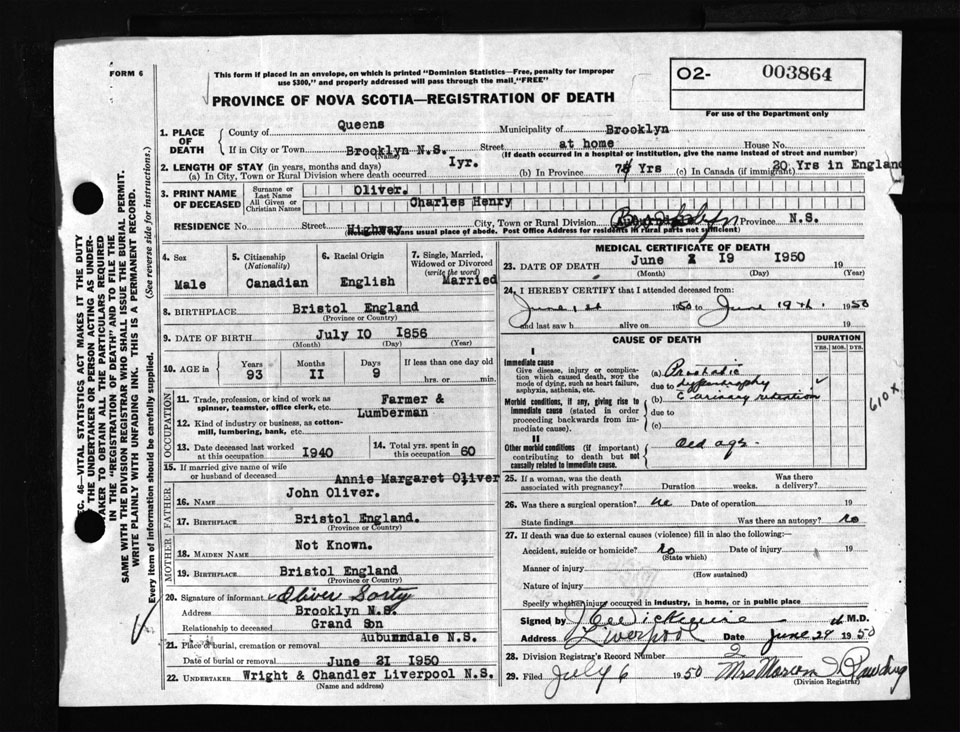 FORM 6
This form if placed in an envelope, on which is printed "Dominion Statistics—Free, penalty for improper
use $300," and properly addressed will pass through the mail "FREE"
O2- 003864
For use of the Department only
PROVINCE OF NOVA SCOTIA—REGISTRATION OF DEATH
1. PLACE OF DEATH
County of Queens Municipality of Brooklyn
If in City or Town Brooklyn N.S. Street at home House No.
(Name) (If death occurred in a hospital or institution, give the name instead of street and number)
2. LENGTH OF STAY (in years, months and days)
(a) In City, Town or Rural Division where death occurred Iyr. (b) In Province 74 Yrs (c) In Canada (if immigrant) 20 Yrs in England
3. PRINT NAME OF DECEASED
Surname or Last Name Oliver.
All Given or Christian Names Charles Henry
RESIDENCE No. Street Highway City, Town or Rural Division Brooklyn Province N.S.
(Residence means usual place of abode. Post Office Address for residents in rural parts not sufficient)
4. Sex Male
5. Citizenship (Nationality) Canadian
6. Racial Origin English
7. Single, Married, Widowed or Divorced (write the word) Married
8. BIRTHPLACE Bristol England
(Province or Country)
9. DATE OF BIRTH July IO I856
(Month) (Day) (Year)
10. AGE in Years 93 Months II Days 9 If less than one day old hrs. or min.
OCCUPATION
11. Trade, profession, or kind of work as spinner, teamster, office clerk, etc. Farmer & Lumberman
12. Kind of industry or business, as cotton-mill, lumbering, bank, etc.
13. Date deceased last worked at this occupation I940
14. Total yrs. spent in this occupation 60
15. If married give name of wife or husband of deceased Annie Margaret Oliver
FATHER
16. NAME John Oliver.
17. BIRTHPLACE Bristol England.
(Province or Country)
MOTHER
18. MAIDEN NAME Not Known.
19. BIRTHPLACE Bristol England
(Province or Country)
20. Signature of informant Oliver Sorty
Address Brooklyn N.S.
Relationship to deceased Grand Son
21. Place of burial, cremation or removal N.S.
Date of burial or removal June 2I I950
22. UNDERTAKER Wright & Chandler Liverpool N.S.
(Name and address)
MEDICAL CERTIFICATE OF DEATH
23. DATE OF DEATH June I9 I950 19
(Month) (Day) (Year)
24. I HEREBY CERTIFY that I attended deceased from:
June 1st 1950 to June 19th. 1950
and last saw h alive on 19
CAUSE OF DEATH
DURATION
YRS. MOS. DYS.
I
Immediate cause
Give disease, injury or complication which caused death, NOT the mode of dying, such as heart failure, asphyxia, asthenia, etc.
(a) Prostatic
due to hypertrophy
Morbid conditions, if any, giving rise to immediate cause (stated in order proceeding backwards from immediate cause).
(b) c urinary retention
due to
(c)
II
Other morbid conditions (if important) contributing to death but not causally related to immediate cause.
Old age.
610x
25. If a woman, was the death associated with pregnancy? Duration weeks. Was there a delivery?
26. Was there a surgical operation? no Date of operation 19
State findings Was there an autopsy? no
27. If death was due to external causes (violence) fill in also the following:
Accident, suicide or homicide? no Date of injury 19
(State which)
Manner of injury
(How sustained)
Nature of injury
Specify whether injury occurred in industry, in home, or in public place
Signed by M.D.
Address Liverpool Date June 29 1950
28. Division Registrar's Record Number 2
29. Filed July 6 1950 Mrs Marion
(Division Registrar)
SEC. 46—VITAL STATISTICS ACT MAKES IT THE DUTY
OF THE UNDERTAKER OR PERSON ACTING AS UNDERTAKER TO OBTAIN ALL THE PARTICULARS REQUIRED
IN THE "REGISTRATION OF DEATH" AND TO FILE THE
SAME WITH THE DIVISION REGISTRAR WHO SHALL ISSUE THE BURIAL PERMIT.
WRITE PLAINLY WITH UNFADING INK. THIS IS A PERMANENT RECORD.
Every item of information should be carefully supplied. (See reverse side for instructions.)